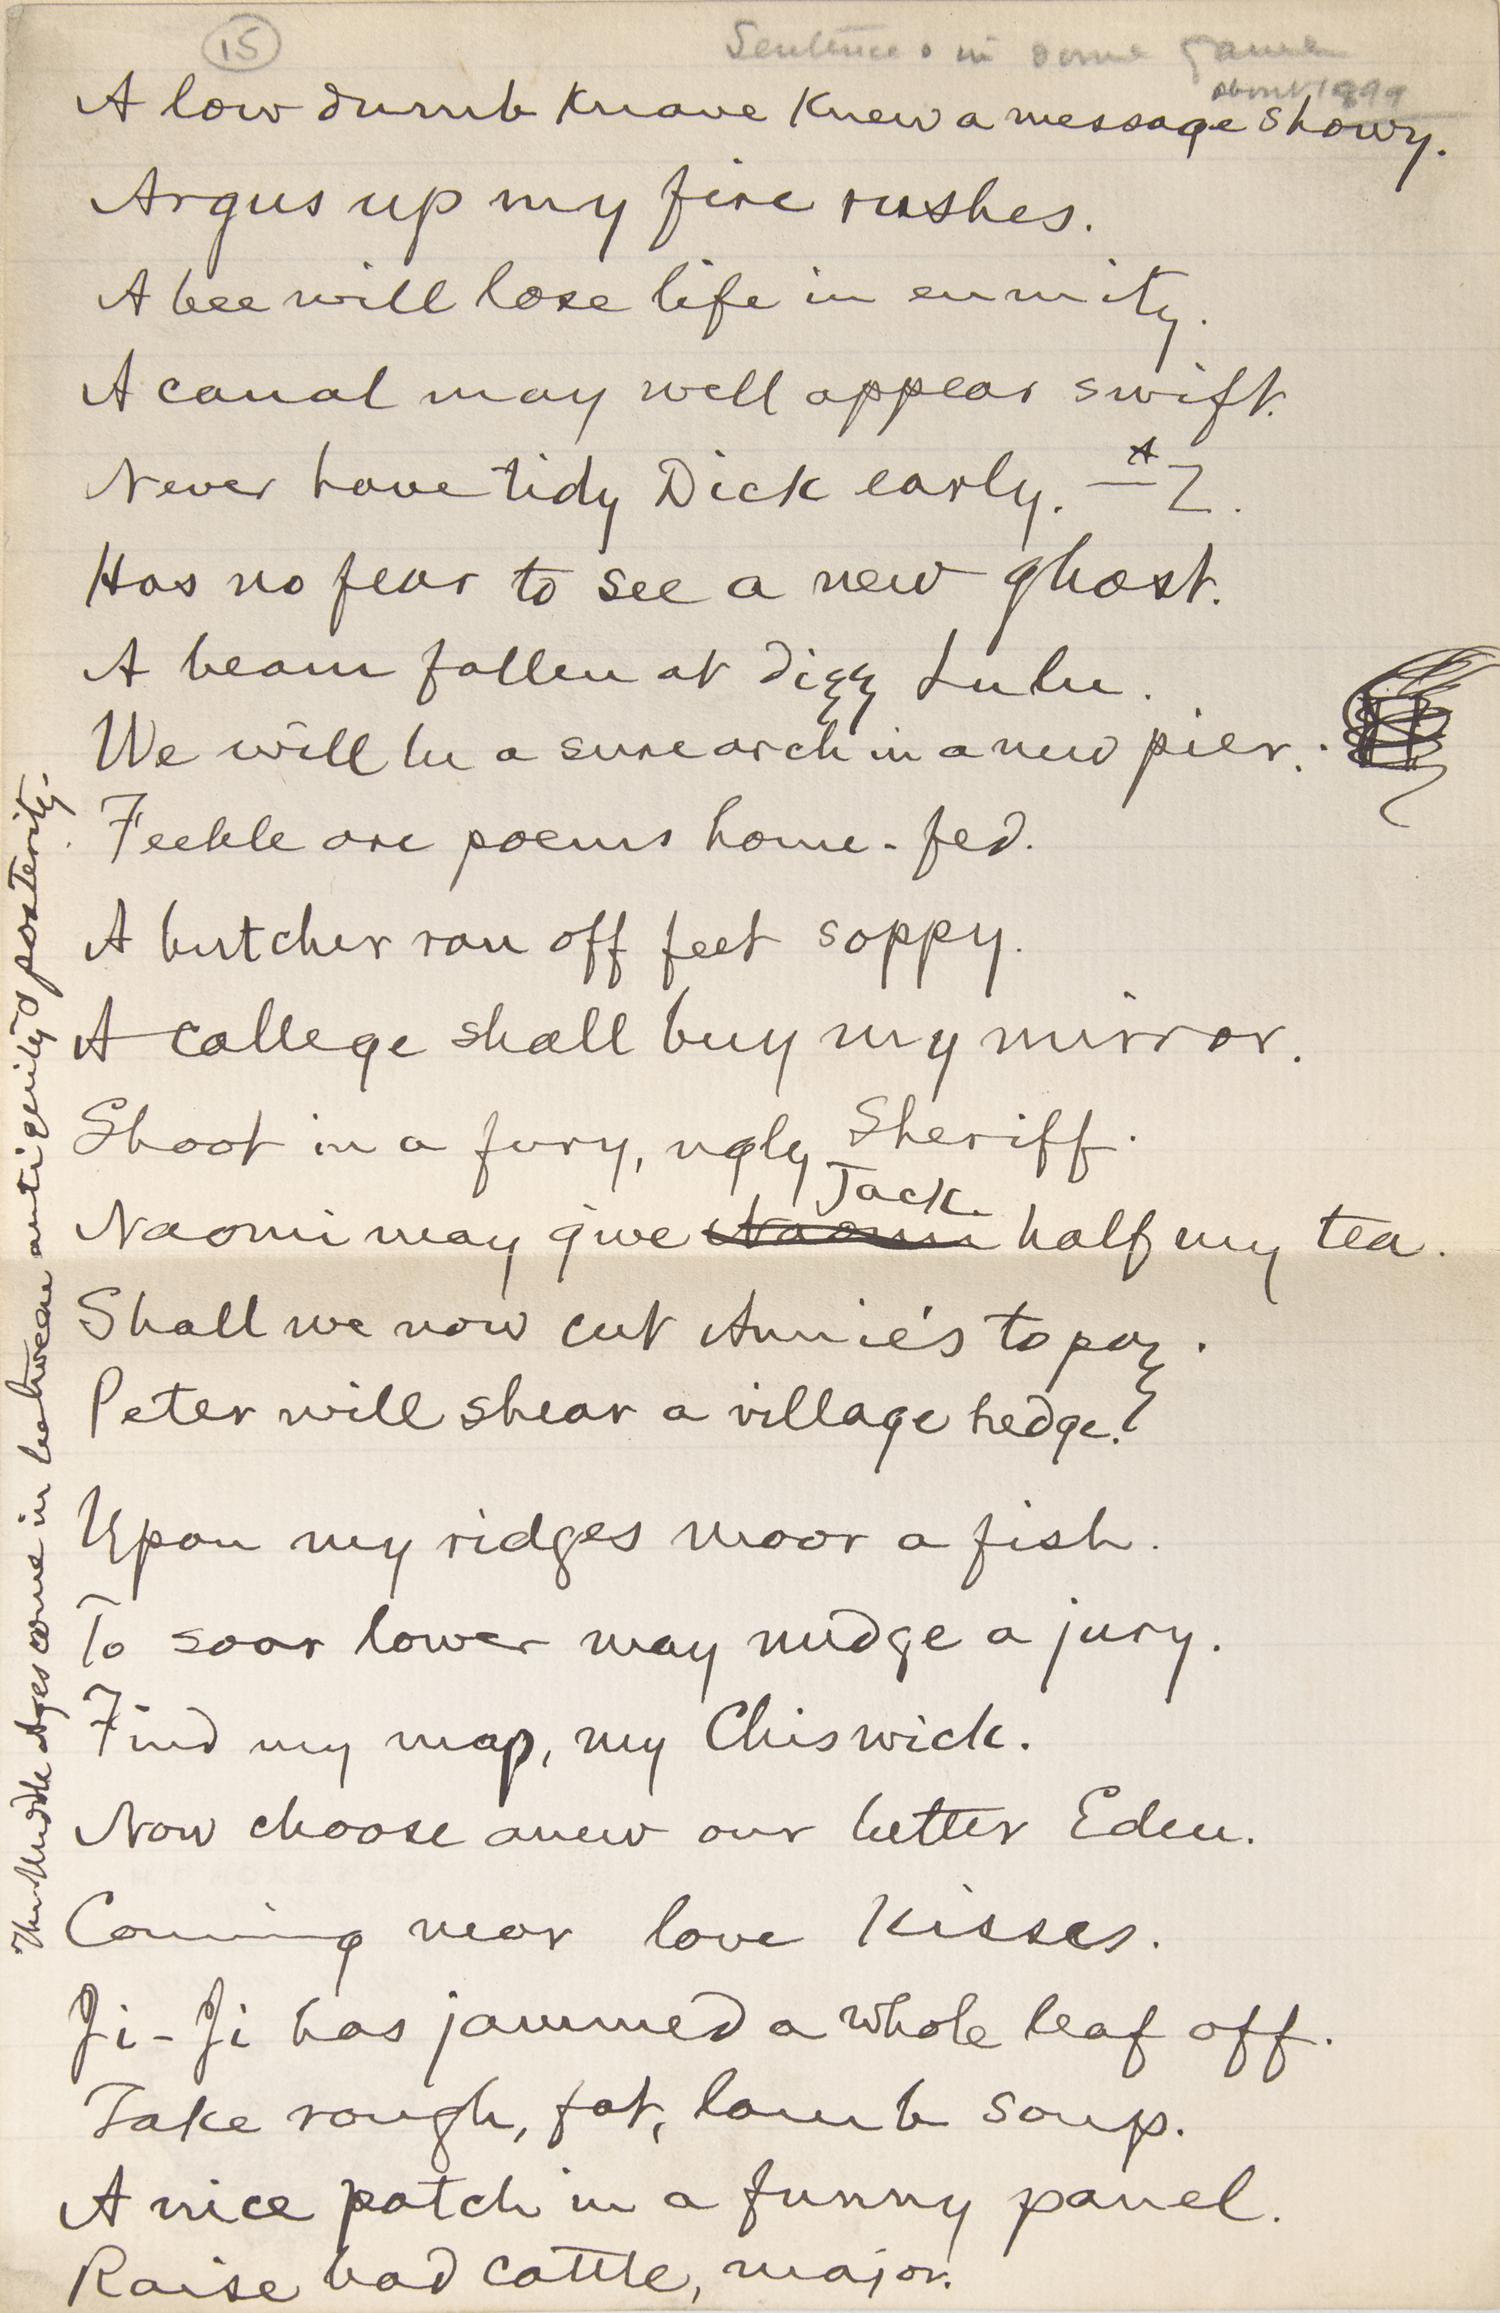 15
Sentences in some game
about 1899
A low dumb Knave Knew a message showy.
Argus up my fire rushes.
A bee will lose life in enmity.
A canal may well appear swift.
Never have tidy Dick early. — A Z.
Has no fear to see a new ghost.
A beam fallen at dizzy Lulu.
We will be a sure arch in a new pier.
Feeble are poems home-fed.
A butcher ran off feet soppy.
A college shall buy my mirror.
Shoot in a fury, ugly Sheriff.
Jack
Naomi may give Naomi half my tea.
Shall we now cut Annie's topaz?
Peter will shear a village hedge.
Upon my ridges moor a fish.
To soar lower may nudge a jury.
Find my map, my Chiswick.
Now choose anew our better Eden.
Coming near love Kisses.
Ji-Ji has jammed a whole leaf off.
Take rough, fat, lamb soup.
A nice patch in a funny panel.
Raise bad cattle, major.
The Middle Ages come in between antiquity & posterity.